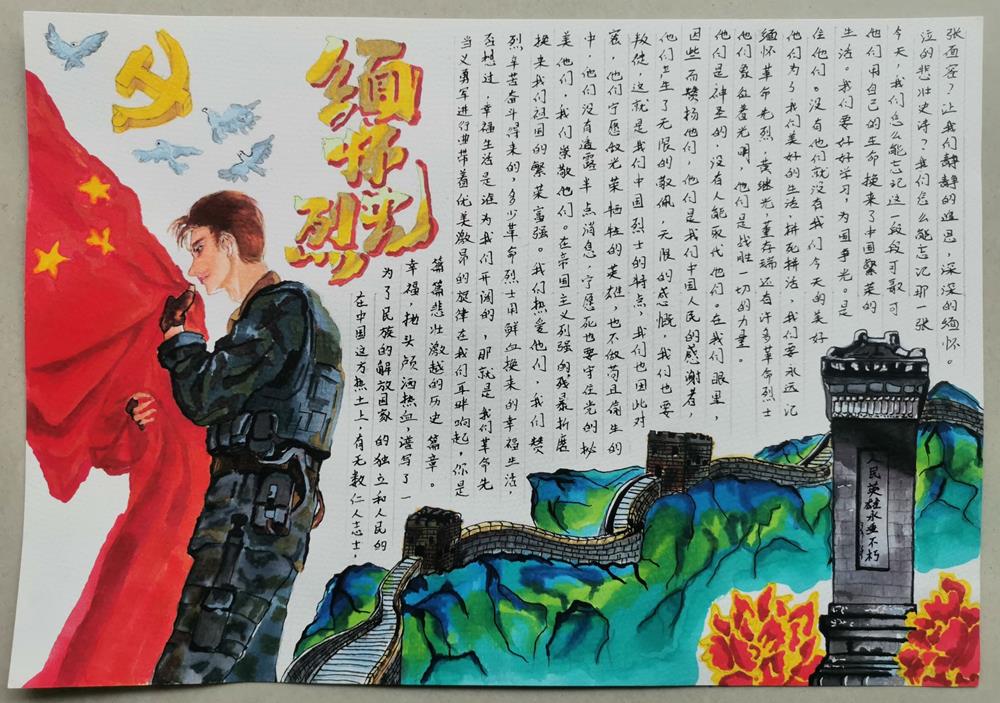 缅怀先烈
在中国这方热土上，有无数仁人志士，
为了民族的解放国家的独立和人民的
幸福抛头颅洒热血，谱写了一
篇篇悲壮激越的历史篇章。
当义勇军进行曲带着优美激昂的旋律在我们耳畔响起，你是
否想过，幸福生活是谁为我们开阔的，那就是我们革命先
烈辛苦奋斗得来的，多少革命烈士用鲜血换来的幸福生活，
换来我们祖国的繁荣富强。我们热爱他们，我们赞
美他们，我们崇敬他们。在帝国主义列强的残暴折磨
中，他们没有透露半点消息，宁愿死也要守住党的秘
密，他们宁愿做光荣牺牲的英雄，也不做苟且偷生的
叛徒，这就是我们中国烈士的特点，我们也因此对
他们产生了无限的敬佩，无限的感慨，我们也要
因些而赞扬他们，他们是我们中国人民的感谢者，
他们是神圣的，没有人能取代他们。在我们眼里，
他们象征着光明，他们是战胜一切的力量。
缅怀革命先烈，黄继光，董存瑞还有许多革命烈士
他们为了我们美好的生活，拼死拼活，我们要永远记
住他们。没有他们就没有我们今天的美好
生活。我们要好好学习，为国争光。是
他们用自己的生命换来了中国繁荣的
今天，我们怎么能忘记这一段段可歌可
泣的悲壮史诗？我们怎么能忘记那一张
张面容？让我们静静的追思，深深的缅怀。
人民英雄永垂不朽